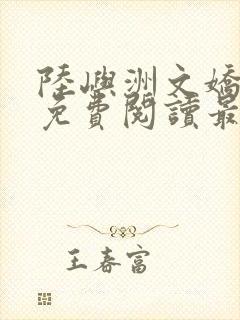 陸嶼洲文嬌
免費閱讀最
王春富